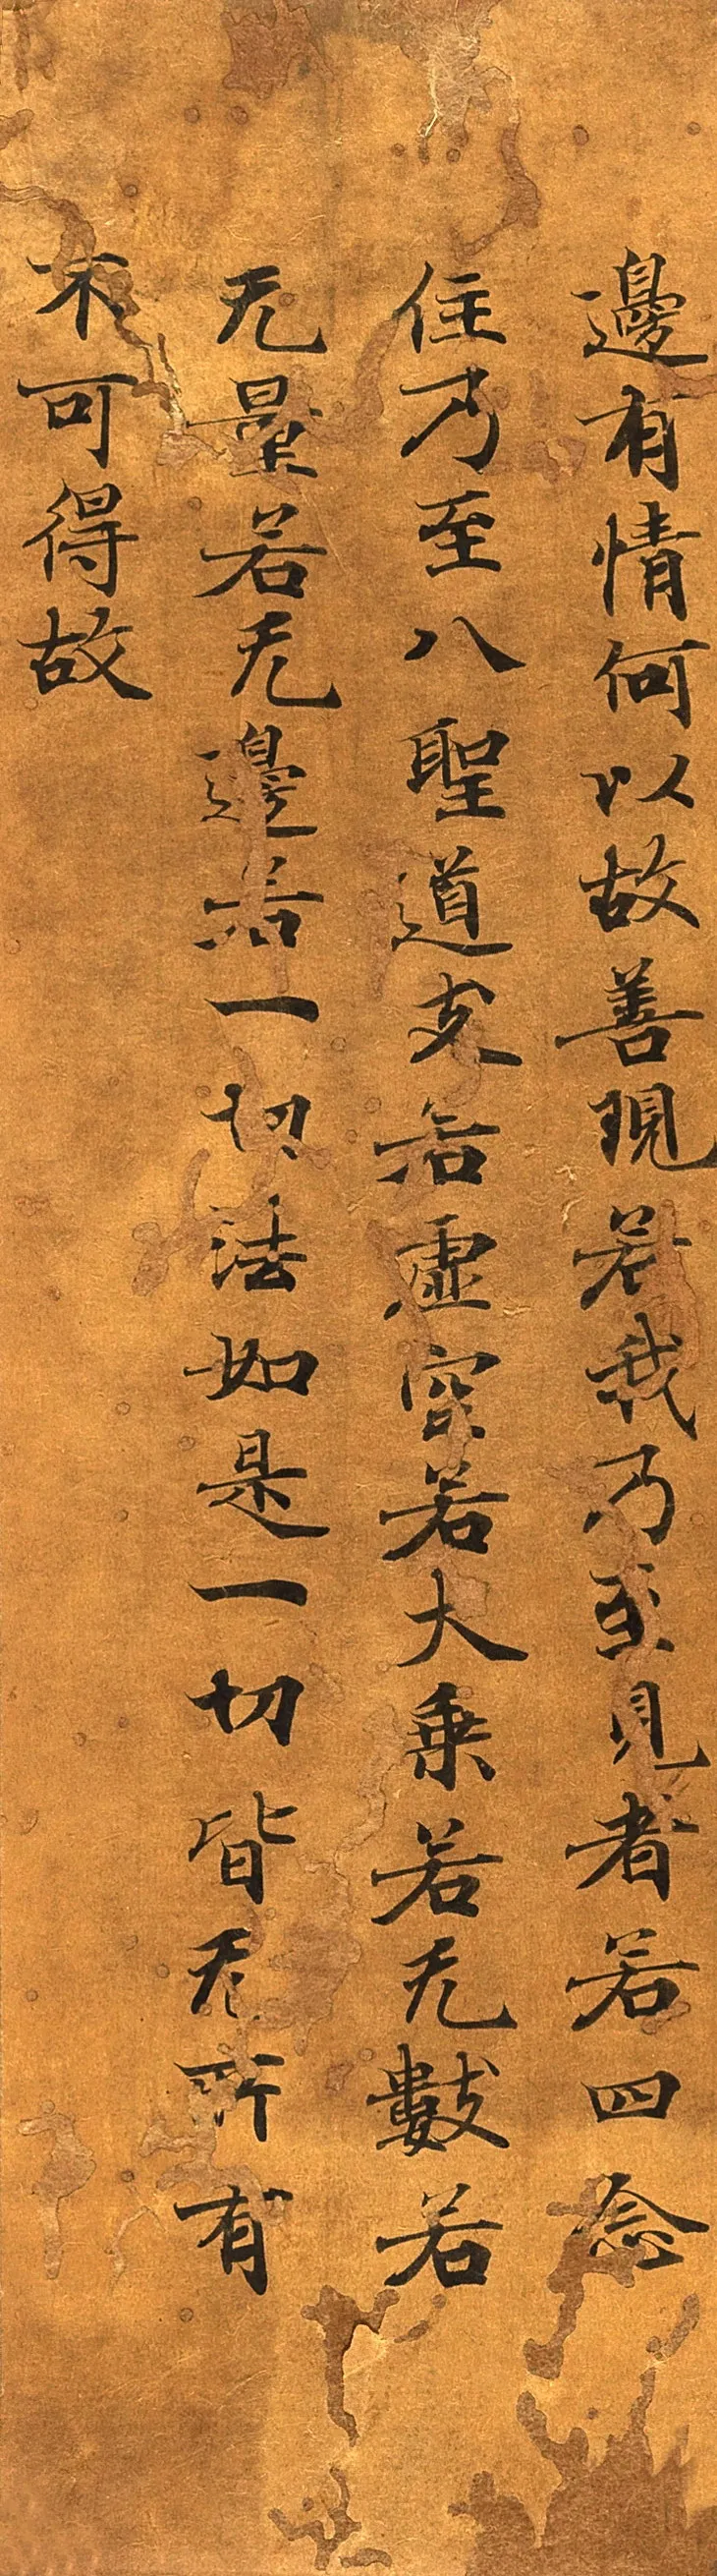 邊有情何以故善現若我乃至見者若四念
住乃至八聖道支若虛空若大乗若无數若
无量若无邊若一切法如是一切皆无所有
不可得故